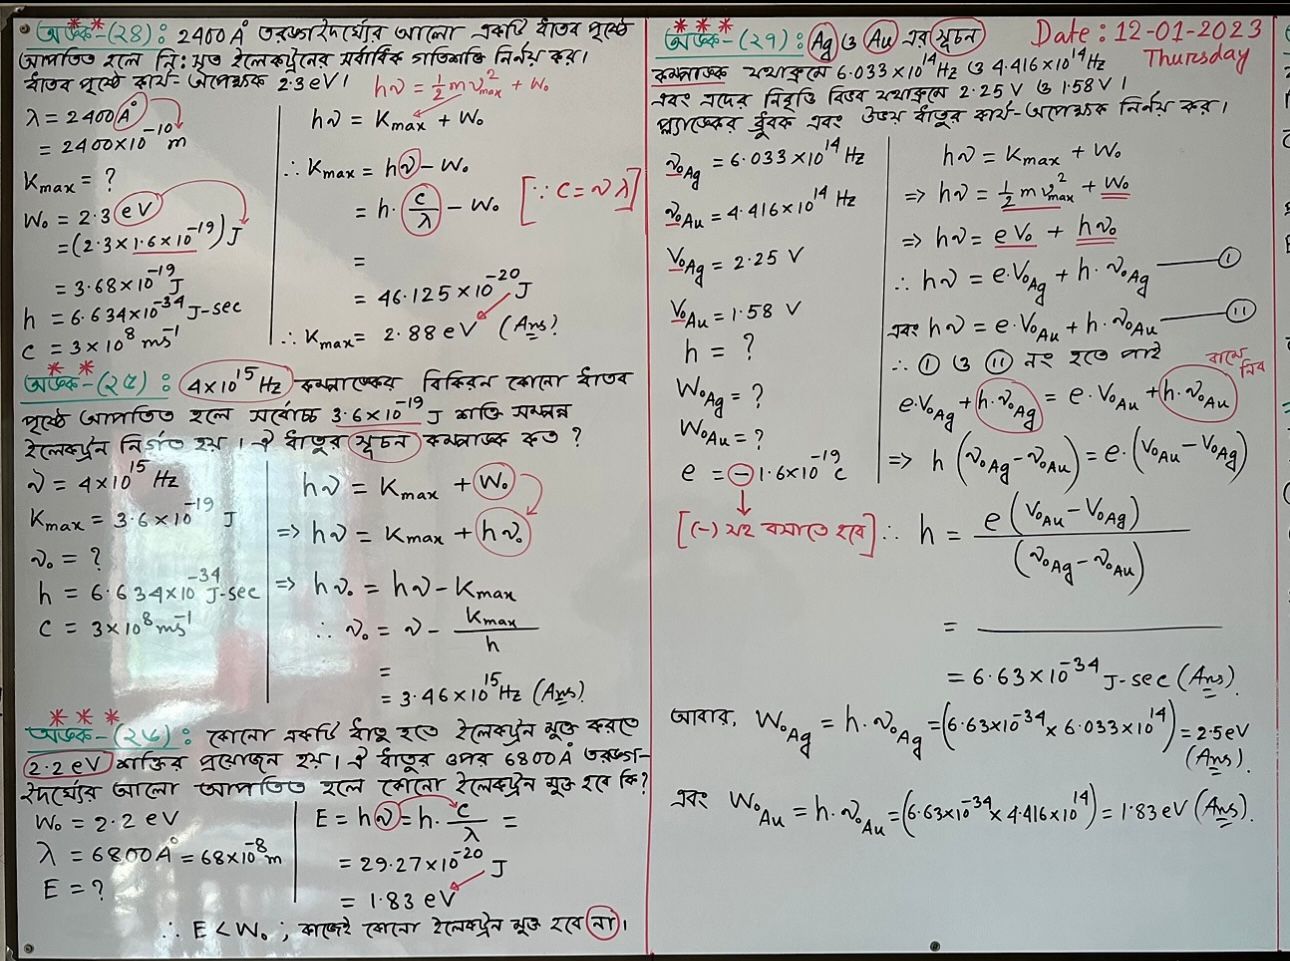 অঙ্ক-(২৪): 2400 Å তরঙ্গদৈর্ঘ্যের আলো একটি ধাতব পৃষ্ঠে
আপতিত হলে নি:সৃত ইলেকট্রনের সর্বাধিক গতিশক্তি নির্নয় কর।
ধাতব পৃষ্ঠে কার্য-অপেক্ষক 2.3 eV।
hν = ½ mv²max + W₀
λ = 2400 Å
= 2400×10⁻¹⁰ m
Kmax = ?
W₀ = 2.3 eV
= (2.3×1.6×10⁻¹⁹) J
= 3.68×10⁻¹⁹ J
h = 6.634×10⁻³⁴ J-sec
c = 3×10⁸ ms⁻¹
hν = Kmax + W₀
∴ Kmax = hν − W₀
= h. c/λ − W₀ [∵ c = νλ]
=
= 46.125×10⁻²⁰ J
∴ Kmax = 2.88 eV (Ans)
অঙ্ক-(২৫): 4×10¹⁵ Hz কম্পাঙ্কের বিকিরন কোনো ধাতব
পৃষ্ঠে আপতিত হলে সর্বোচ্চ 3.6×10⁻¹⁹ J শক্তি সম্পন্ন
ইলেকট্রন নির্গত হয়। ঐ ধাতুর সূচন কম্পাঙ্ক কত ?
ν = 4×10¹⁵ Hz
Kmax = 3.6×10⁻¹⁹ J
ν₀ = ?
h = 6.634×10⁻³⁴ J-sec
c = 3×10⁸ ms⁻¹
hν = Kmax + W₀
⇒ hν = Kmax + hν₀
⇒ hν₀ = hν − Kmax
∴ ν₀ = ν − Kmax/h
=
= 3.46×10¹⁵ Hz (Ans)
অঙ্ক-(২৬): কোনো একটি ধাতু হতে ইলেকট্রন মুক্ত করতে
2.2 eV শক্তির প্রয়োজন হয়। ঐ ধাতুর ওপর 6800 Å তরঙ্গ-
দৈর্ঘ্যের আলো আপতিত হলে কোনো ইলেকট্রন মুক্ত হবে কি?
W₀ = 2.2 eV
λ = 6800 Å = 68×10⁻⁸ m
E = ?
E = hν = h. c/λ =
= 29.27×10⁻²⁰ J
= 1.83 eV
∴ E < W₀ ; কাজেই কোনো ইলেকট্রন মুক্ত হবে না।
Date: 12-01-2023
Thursday
অঙ্ক-(২৭): Ag ও Au এর সূচন
কম্পাঙ্ক যথাক্রমে 6.033×10¹⁴ Hz ও 4.416×10¹⁴ Hz
এবং এদের নিবৃত্তি বিভব যথাক্রমে 2.25 V ও 1.58 V।
প্ল্যাঙ্কের ধ্রুবক এবং উভয় ধাতুর কার্য-অপেক্ষক নির্নয় কর।
ν₀Ag = 6.033×10¹⁴ Hz
ν₀Au = 4.416×10¹⁴ Hz
V₀Ag = 2.25 V
V₀Au = 1.58 V
h = ?
W₀Ag = ?
W₀Au = ?
e = −1.6×10⁻¹⁹ C
[(−) সহ বসাতে হবে]
hν = Kmax + W₀
⇒ hν = ½ mv²max + W₀
⇒ hν = eV₀ + hν₀
∴ hν = e.V₀Ag + h.ν₀Ag — (i)
এবং hν = e.V₀Au + h.ν₀Au — (ii)
∴ (i) ও (ii) নং হতে পাই
বামে নিব
e.V₀Ag + h.ν₀Ag = e.V₀Au + h.ν₀Au
⇒ h(ν₀Ag − ν₀Au) = e.(V₀Au − V₀Ag)
∴ h = e(V₀Au − V₀Ag) / (ν₀Ag − ν₀Au)
=
= 6.63×10⁻³⁴ J-sec (Ans).
আবার, W₀Ag = h.ν₀Ag = (6.63×10⁻³⁴ × 6.033×10¹⁴) = 2.5 eV
(Ans).
এবং W₀Au = h.ν₀Au = (6.63×10⁻³⁴ × 4.416×10¹⁴) = 1.83 eV (Ans).